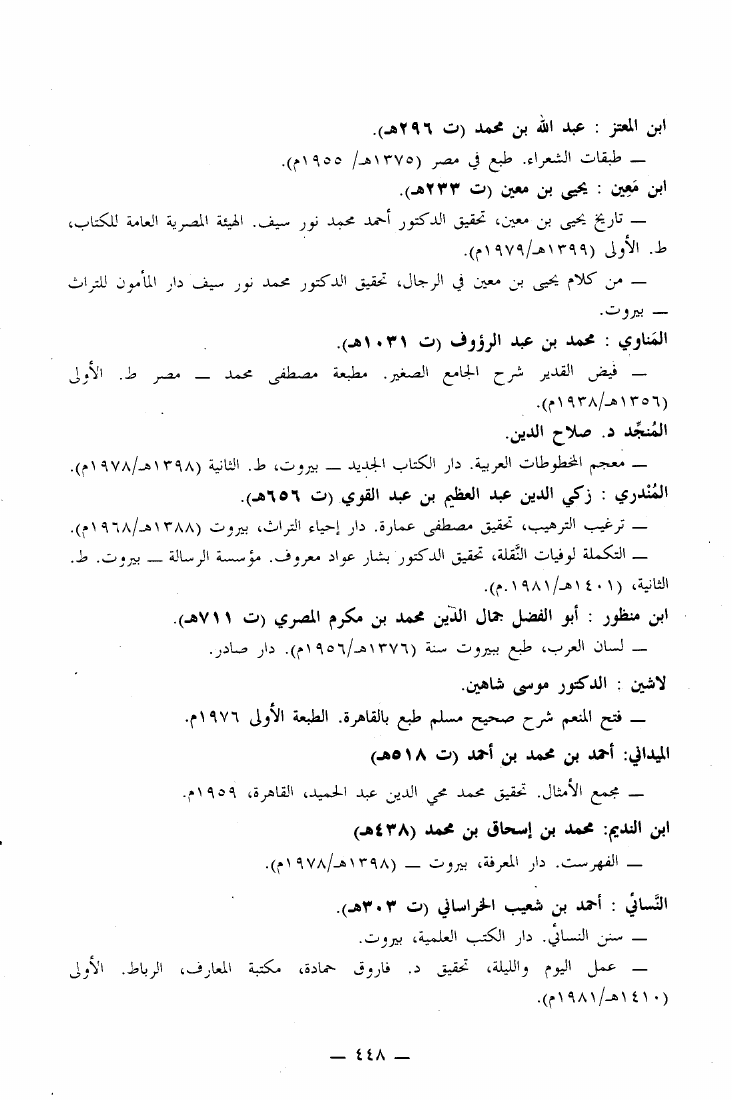 ابن المعتز : عبد الله بن محمد (ت ٢٩٦هـ).
— طبقات الشعراء. طبع في مصر (١٣٧٥هـ/ ١٩٥٥م).
ابن مَعِين : يحيى بن معين (ت ٢٣٣هـ).
— تاريخ يحيى بن معين، تحقيق الدكتور أحمد محمد نور سيف. الهيئة المصرية العامة للكتاب،
ط. الأولى (١٣٩٩هـ/١٩٧٩م).
— من كلام يحيى بن معين في الرجال، تحقيق الدكتور محمد نور سيف دار المأمون للتراث
— بيروت.
المَناوي : محمد بن عبد الرؤوف (ت ١٠٣١هـ).
— فيض القدير شرح الجامع الصغير. مطبعة مصطفى محمد — مصر ط. الأولى
(١٣٥٦هـ/١٩٣٨م).
المُنجِّد د. صلاح الدين.
— معجم المخطوطات العربية. دار الكتاب الجديد — بيروت، ط. الثانية (١٣٩٨هـ/١٩٧٨م).
المُنْدري : زكي الدين عبد العظيم بن عبد القوي (ت ٦٥٦هـ).
— ترغيب الترهيب، تحقيق مصطفى عمارة. دار إحياء التراث، بيروت (١٣٨٨هـ/١٩٦٨م).
— التكملة لوفيات النَّقلة، تحقيق الدكتور بشار عواد معروف. مؤسسة الرسالة — بيروت. ط.
الثانية، (١٤٠١هـ/١٩٨١.م).
ابن منظور : أبو الفضل جمال الدّين محمد بن مكرم المصري (ت ٧١١هـ).
— لسان العرب، طبع ببيروت سنة (١٣٧٦هـ/١٩٥٦م). دار صادر.
لاشين : الدكتور موسى شاهين.
— فتح المنعم شرح صحيح مسلم طبع بالقاهرة. الطبعة الأولى ١٩٧٦م.
الميداني: أحمد بن محمد بن أحمد (ت ٥١٨هـ)
— مجمع الأمثال. تحقيق محمد محي الدين عبد الحميد، القاهرة، ١٩٥٩م.
ابن النديم: محمد بن إسحاق بن محمد (٤٣٨هـ)
— الفهرست. دار المعرفة، بيروت — (١٣٩٨هـ/١٩٧٨م).
النَّسائي : أحمد بن شعيب الخراساني (ت ٣٠٣هـ).
— سنن النسائي. دار الكتب العلمية، بيروت.
— عمل اليوم والليلة، تحقيق د. فاروق حمادة، مكتبة المعارف، الرباط. الأولى
(١٤١٠هـ/١٩٨١م).
— ٤٤٨ —